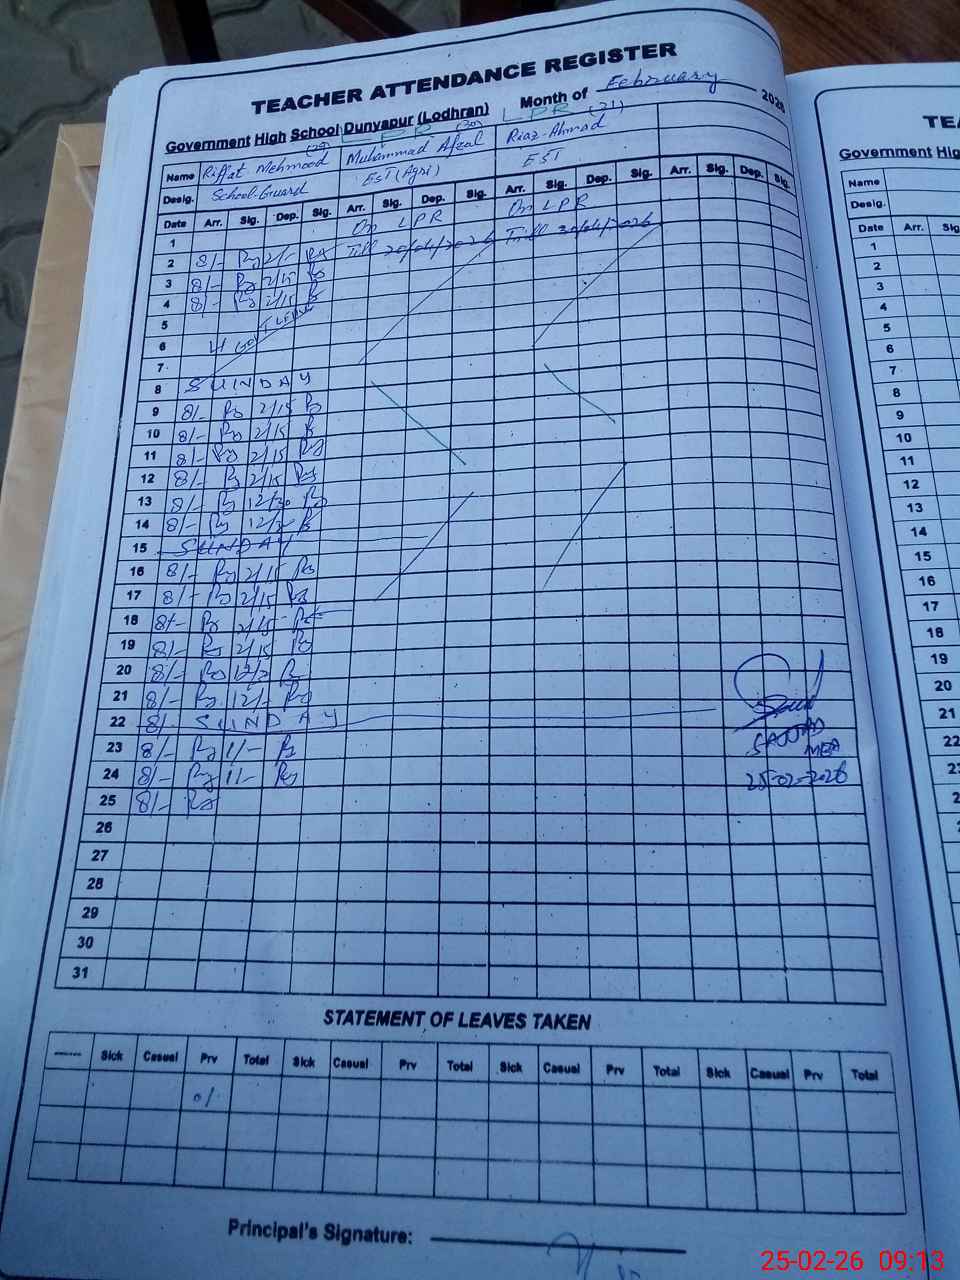 TEACHER ATTENDANCE REGISTER
Government High School Dunyapur (Lodhran) Month of February 2026
LPR (30) LPR (31)
Name Riffat Mehmood Muhammad Afzal Riaz Ahmad
Desig. School Guard EST (Agri) EST
Date Arr. Sig. Dep. Sig. Arr. Sig. Dep. Sig. Arr. Sig. Dep. Sig. Arr. Sig. Dep. Sig.
1 On LPR On LPR
2 8/- 2/- Till 20/04/2026 Till 30/04/2026
3 8/- 2/15
4 8/- 2/15
5
6
7
8 SUNDAY
9 8/- 2/15
10 8/- 2/15
11 8/- 2/15
12 8/- 2/15
13 8/- 12/30
14 8/-
15 SUNDAY
16 8/- 2/15
17 8/- 2/15
18 8/- 2/15
19 8/- 2/15
20 8/-
21 8/- 12/-
22 8/- SUNDAY
23 8/- 1/-
24 8/- 1/-
25 8/-
26
27
28
29
30
31
SAJJAD
MEA
25-02-2026
STATEMENT OF LEAVES TAKEN
Sick Casual Prv Total Sick Casual Prv Total Sick Casual Prv Total Sick Casual Prv Total
Principal's Signature:
TEA
Government Hig
Name
Desig.
Date Arr. Sig
1
2
3
4
5
6
7
8
9
10
11
12
13
14
15
16
17
18
19
20
21
22
25-02-26 09:13